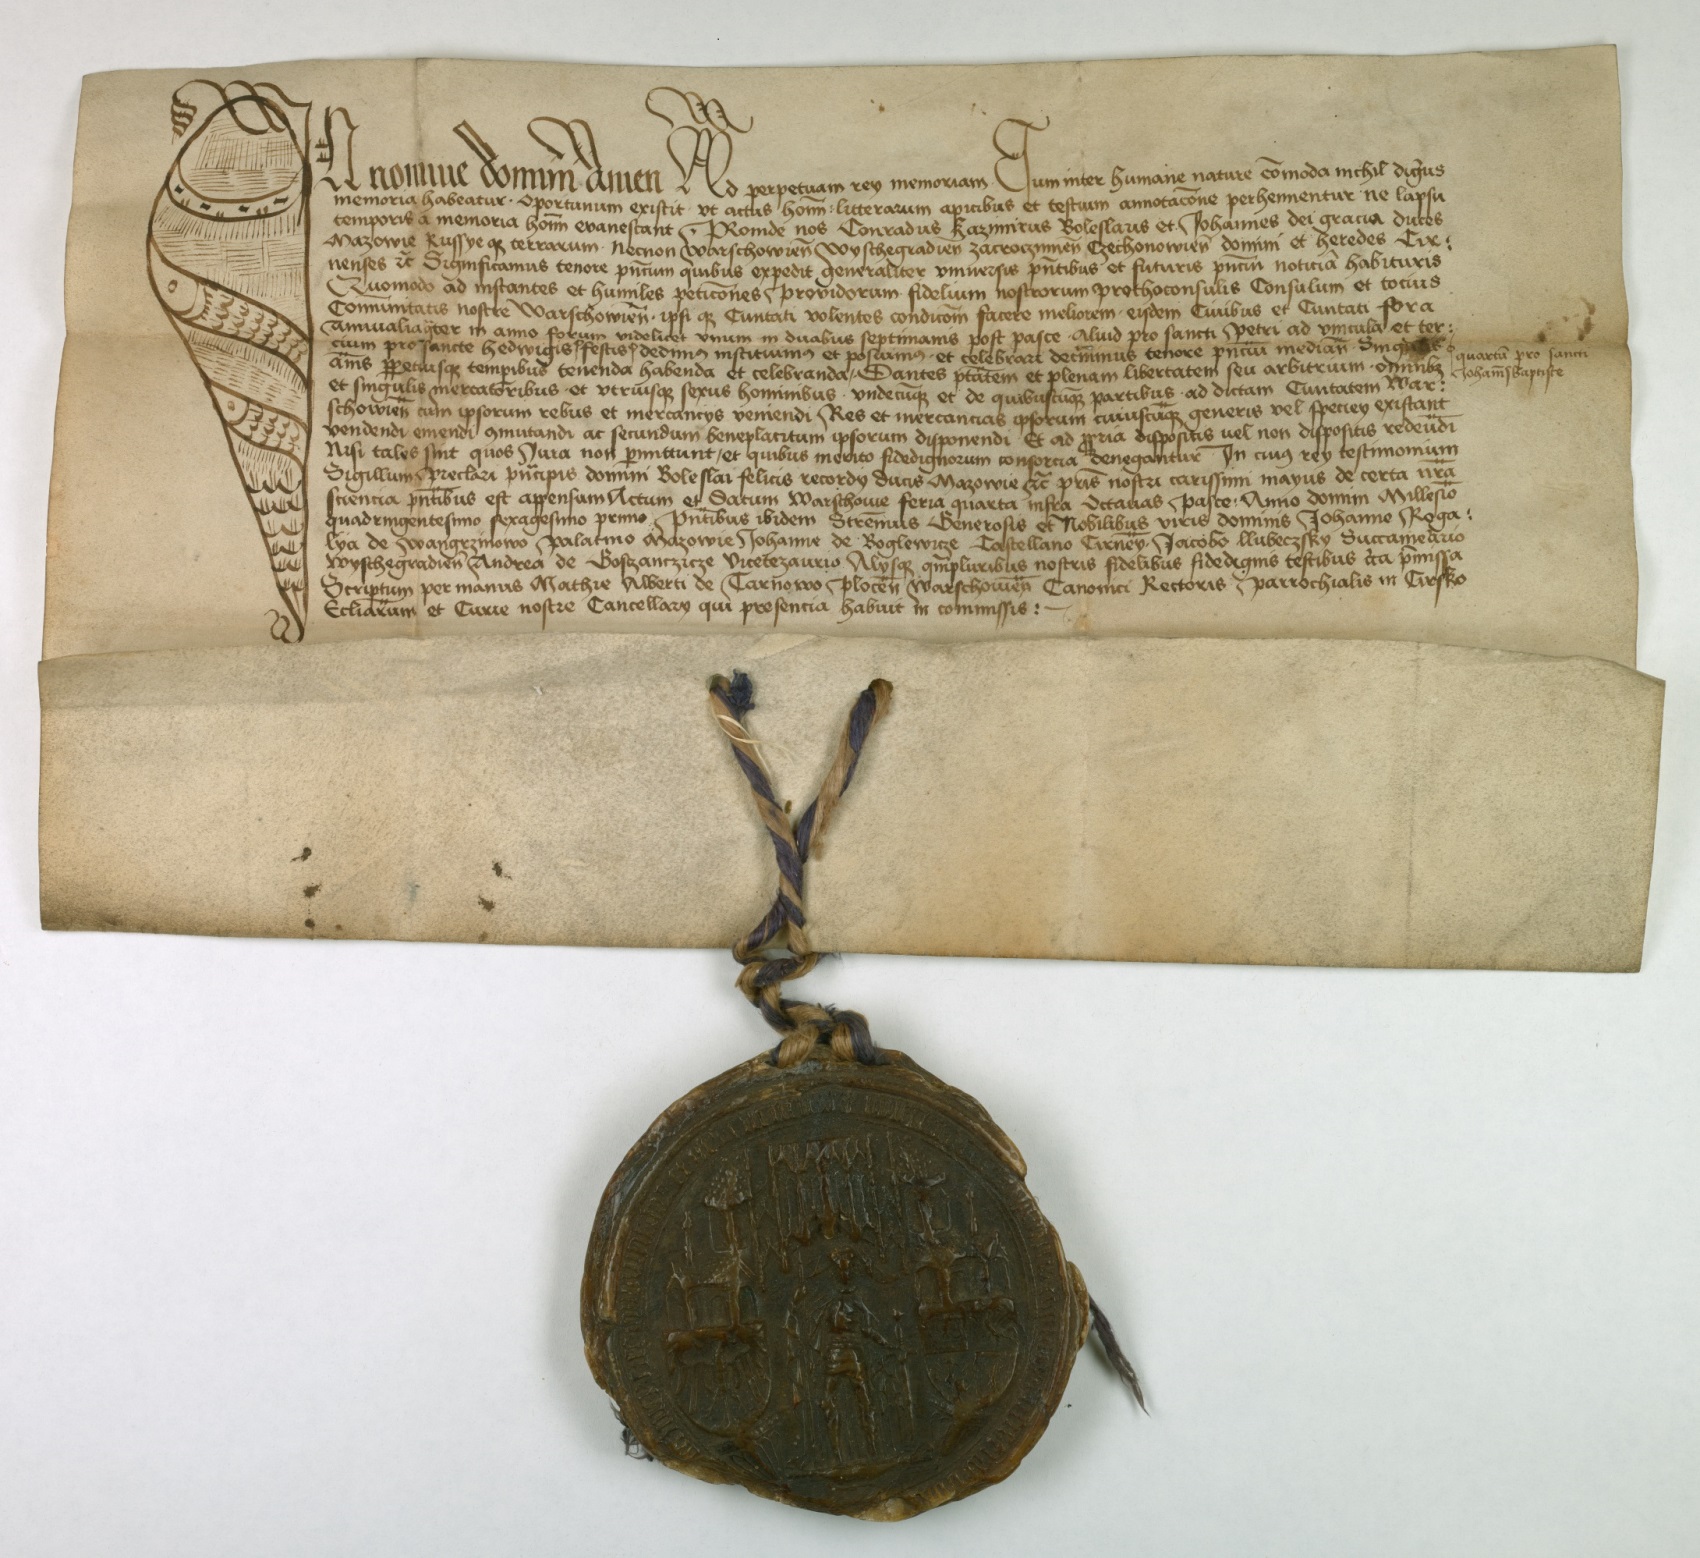 In nomine domini Amen Ad perpetuam rey memoriam Cum inter humane nature cōmoda nichil dignus
memoria habeatur · oportunum existit · vt actus hoīm · litterarum apicibus et testium annotacōne perhennentur · ne lapsu
temporis a memoria hoīm evanescant · Proinde nos Conradus Kazimirus Boleslaus et Johannes dei gracia duces
Mazowie Russye qꝫ terrarum · necnon Warschowien̄ Wyschegradien̄ zacroczimien̄ Czechonowien̄ domini et heredes Cir:
nenses rc̄ Significamus tenore pn̄cium quibus expedit generaliter vniuersis pn̄tibus et futuris pn̄ciū noticiā habituris
Quomodo ad instantes et humiles peticōnes providorum fidelium nostrorum prothoconsulis Consulum et tocius
Com̄unitatis nostre Warschowien̄ · ipsi qꝫ Ciuitati volentes condicōm facere meliorem · eisdem Ciuibus et Ciuitati fora
annualia in anno forum videlicet vnum in duabus septimanis post pasce · aliud pro sancti Petri ad vincula et ter:
cium pro sancte hedwigis festis dedimꝰ instituimꝰ et posuimꝰ · et celebrari decreuimus tenore pn̄ciū median̄ · Singulis
quartū pro sancti
Johan̄is baptiste
an̄is ꝑpetuisqꝫ temꝑibus tenenda habenda et celebranda · Dantes ptātem et plenam libertatem seu arbitrium · omnibꝫ
et singulis mercatoribus · et vtriusqꝫ sexus hominibus · vndecūqꝫ et de quibuscūqꝫ partibus · ad dictam Ciuitatem War:
schowien̄ cum ipsorum rebus et mercancys veniendi Res et mercancias ipsorum cuiuscūqꝫ generis vel speciey existant
vendendi emendi ꝯmutandi ac secundum beneplacitum ipsorum disponendi Et ad ꝓpria dispositis vel non dispositis redeūdi
Nisi tales sint quos Jura non ꝑmittunt / et quibus merito fidedignorum consorcia denegantur In cuiꝰ rey testimonium
Sigillum preclari pn̄cipis domini Boleslai felicis recordy ducis Mazowie rc̄ pr̄is nostri carissimi mayus de certa nr̄a
sciencia pn̄tibus est appensum Actum et Datum Warschowie feria quarta infra Octauas pasce · Anno domini Millesīo
quadringentesimo sexagesimo primo · pn̄tibus ibidem Strēnuis Generosis et Nobilibus viris dominis Johanne Roga:
lya de Wangrzinowo palatino Mazowie Johanne de Boglewicze Castellano Cirnēn · Jacobo llubeczsky Succamerario
Wyschegradien̄ Andrea de Boszanczicze Vicethezaurio Alysqꝫ qm̄pluribus nostris fidelibus fidedignis testibus cīta p̄missa
Scriptum per manus Mathie Alberti de Tarnowo plocen̄ Warschowien̄ Canonici Rectoris parrochialis in Cirsko
Ecliarum et Curie nostre Cancellary qui presencia habuit in commissis :